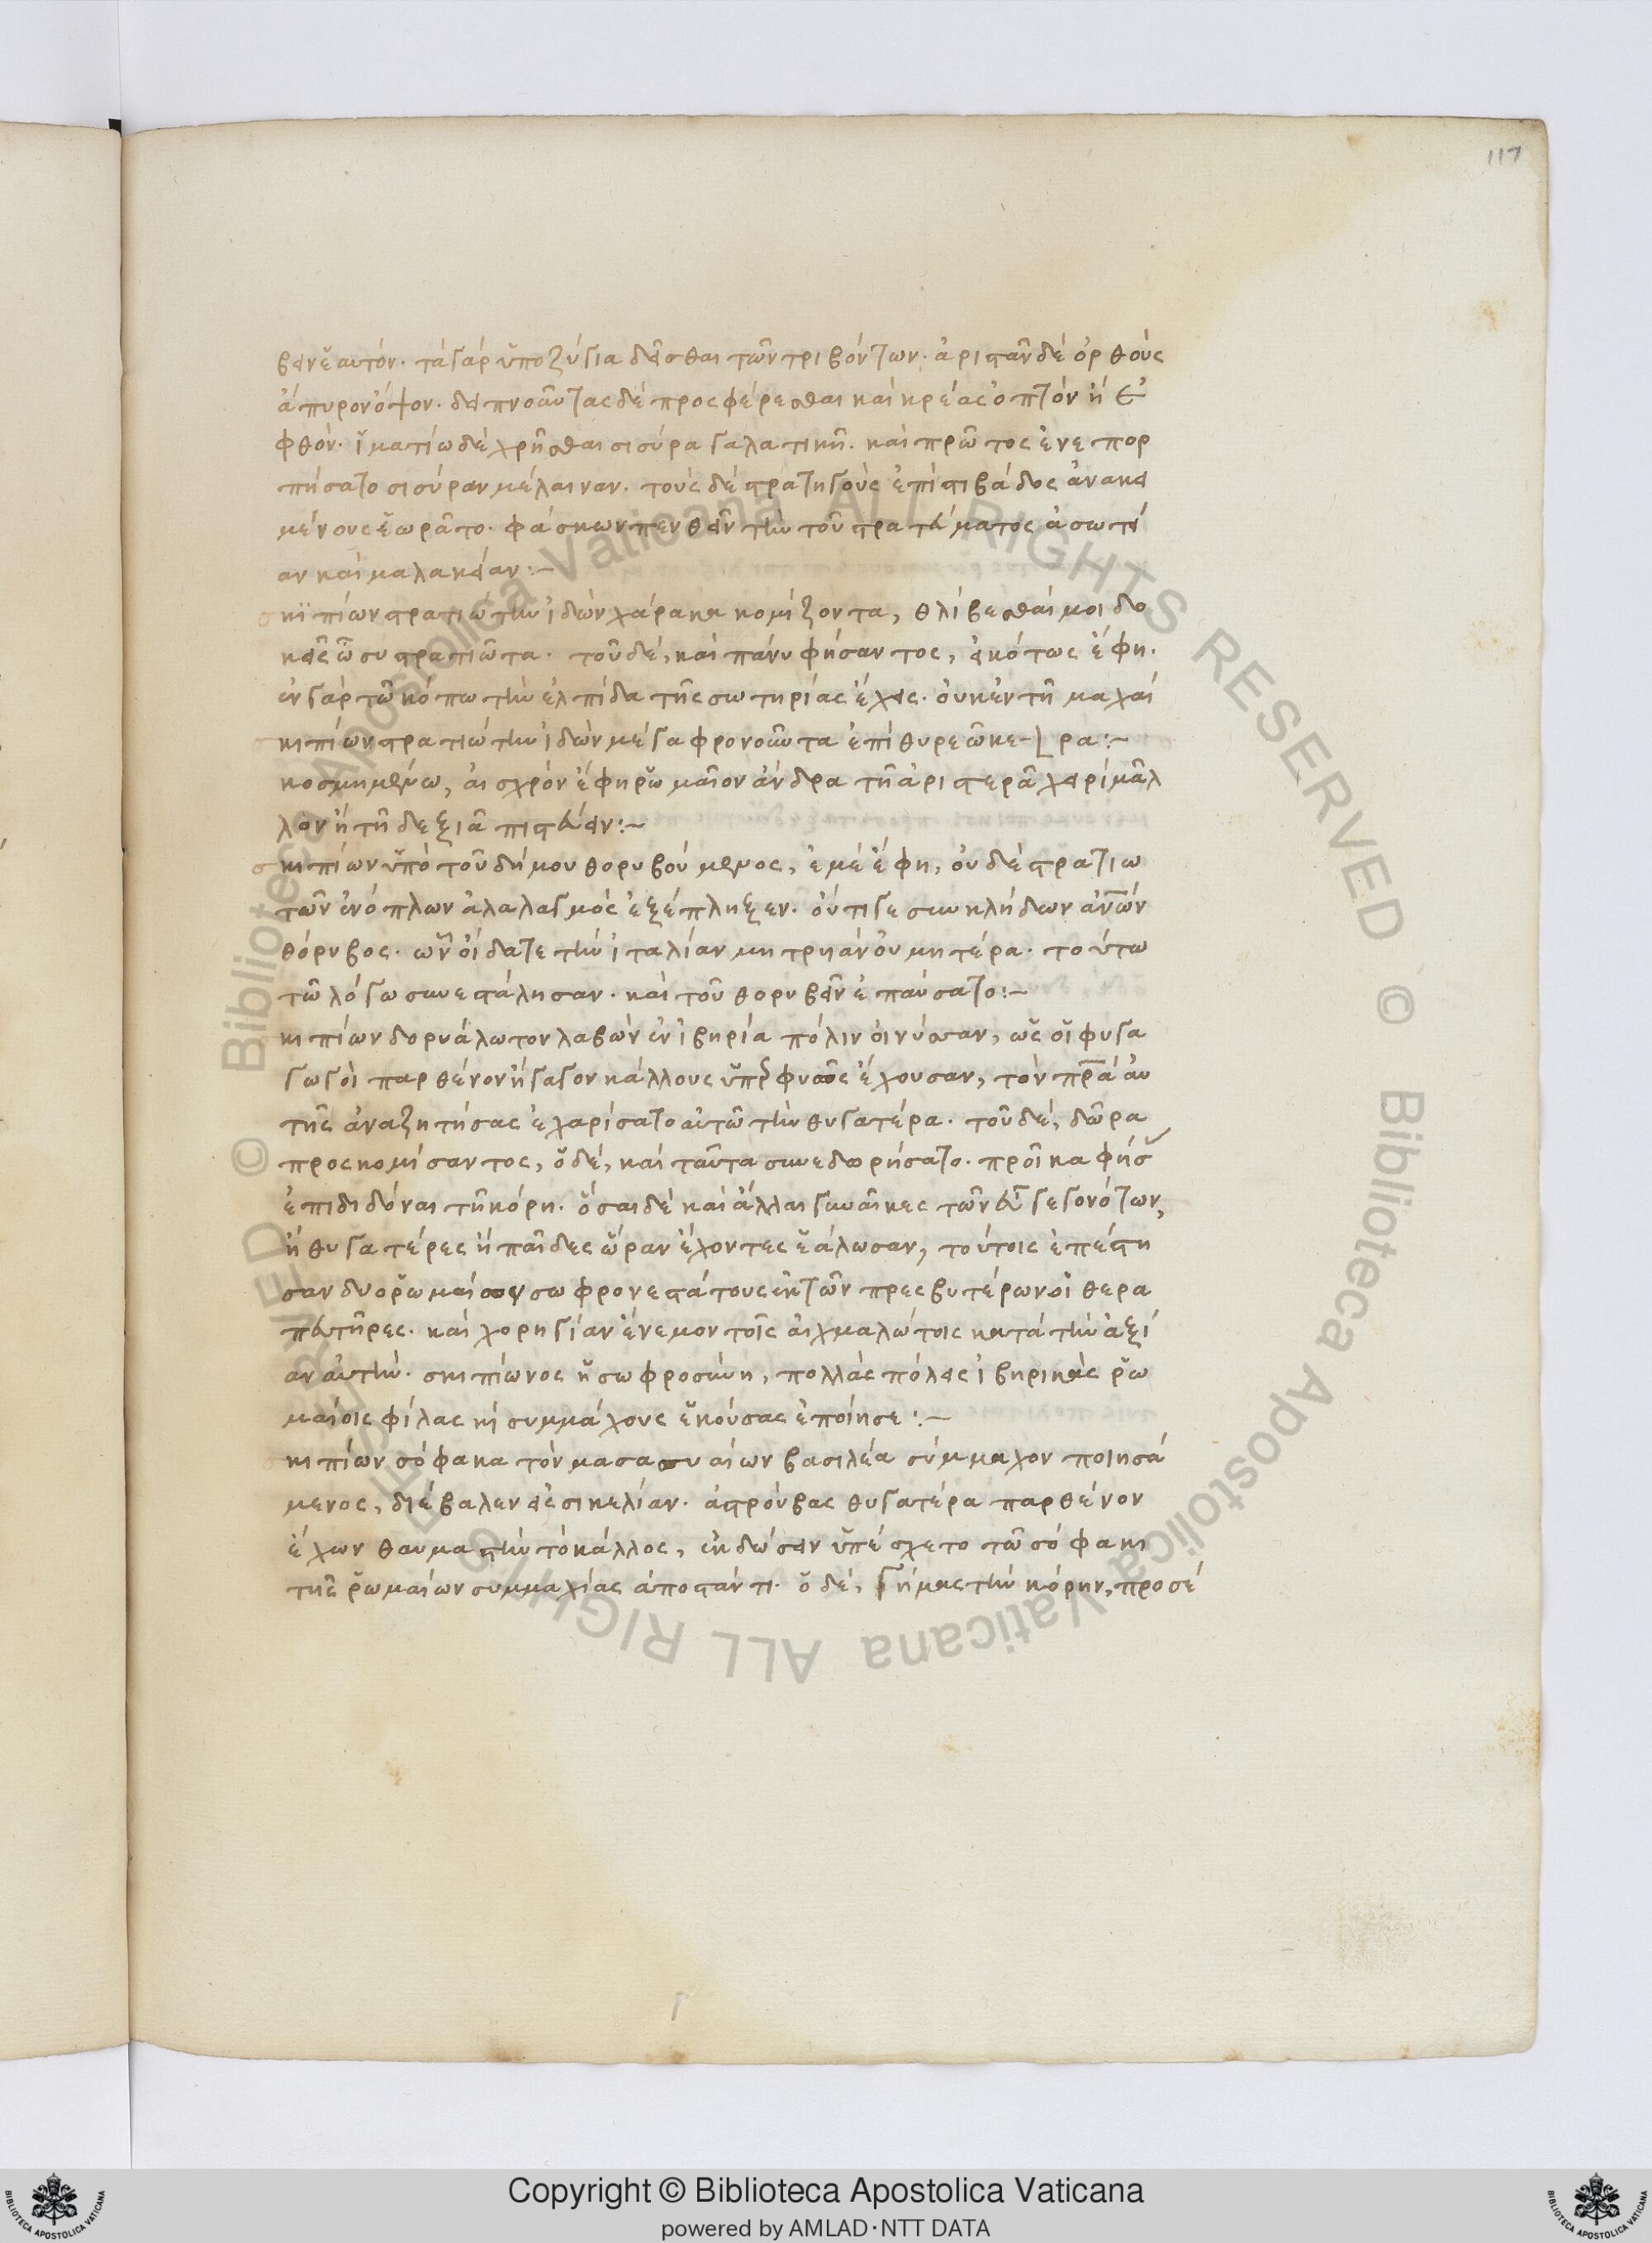 117
βεινἑαυτόν. τὰ γὰρ ὑποζύγια δεῖσθαι τῶν τριβόντων. ἀριστᾶν δὲ ὀρθοὺς
ἄπυρον ὄψον. δειπνοῦντας δὲ προσφέρεσθαι καὶ κρέας ὀπτὸν ἢ ἐ
φθόν. ἱματίω δὲ χρῆσθαι σισύρα γαλατικῆ. καὶ πρῶτος ἐνεπορ
πήσατο σισύραν μέλαιναν. τοὺς δὲ στρατηγοὺς ἐπὶ στιβάδος ἀνακει
μένους ἑωρᾶτο. φάσκων πενθεῖν τὴν τοῦ στρατεύματος ἀσωτεί
αν καὶ μαλακείαν:~
σκιπίων στρατιώτην ἰδὼν χάρακα κομίζοντα, θλίβεσθαί μοι δο
κεῖς ὦ συστρατιῶτα. τοῦ δὲ, καὶ πάνυ φήσαντος, εἰκότως ἔφη.
ἐν γὰρ τῶ κόπω τὴν ἐλπίδα τῆς σωτηρίας ἔχεις. οὐκ ἐν τῆ μαχαί
σκιπίων στρατιώτην ἰδὼν μέγα φρονοῦντα ἐπὶ θυρεῶ κε- ρα:~
κοσμημένω, αἰσχρὸν ἔφη ῥωμαῖον ἄνδρα τῆ ἀριστερᾶ χειρὶ μᾶλ
λον ἢ τῆ δεξιᾶ πιστεύειν:~
σκιπίων ὑπὸ τοῦ δήμου θορυβούμενος, ἐμὲ ἔφη, οὐδὲ στρατιω
τῶν ἐνόπλων ἀλαλαγμὸς ἐξέπληξεν. οὔτι γε συνκλήδων ἀνων
θόρυβος. ὧν οἴδατε τὴν ἰταλίαν μητρηὰν οὐ μητέρα. τούτω
τῶ λόγω συνεστάλησαν. καὶ τοῦ θορυβεῖν ἐπαύσατο:~
κιπίων δορυάλωτον λαβὼν ἐν ἰβηρία πόλιν οἰνύσσαν, ὡς οἱ φυγα
γωγοὶ παρθένον ἤγαγον κάλλους ὑπερφυῶς ἔχουσαν, τὸν πρα αὐ
τῆς ἀναζητήσας ἐχαρίσατο αὐτῶ τὴν θυγατέρα. τοῦ δὲ, δῶρα
προσκομίσαντος, ὁ δὲ, καὶ ταῦτα συνεδωρήσατο. προῖκα φήσ
ἐπιδιδόναι τῆ κόρη. ὅσαι δὲ καὶ ἄλλαι γυναῖκες τῶν εὖ γεγονότων,
ἢ θυγατέρες ἢ παῖδες ὥραν ἔχοντες ἑάλωσαν, τούτοις ἐπέστη
σαν δυο ῥωμαίους σωφρονεστάτους ἐκ τῶν πρεσβυτέρων οἱ θερα
πευτῆρες. καὶ χορηγίαν ἔνεμον τοῖς αἰχμαλώτοις κατὰ τὴν ἀξί
αν αὐτήν. σκιπίωνος ἡ σωφροσύνη, πολλὰς πόλεις ἰβηρικὰς ῥω
μαίοις φίλας κὶ συμμάχους ἑκούσας ἐποίησε:~
κιπίων σόφακα τὸν μασασυαίων βασιλέα σύμμαχον ποιησά
μενος, διέβαλεν εἰς σικελίαν. ἀστρούβας θυγατέρα παρθένον
ἔχων θαυμαστὴν τὸ κάλλος, ἐκδώσειν ὑπέσχετο τῶ σόφακι
τῆς ῥωμαίων συμμαχίας ἀποστάντι. ὁ δὲ, γήμας τὴν κόρην, προσέ
Copyright © Biblioteca Apostolica Vaticana
powered by AMLAD·NTT DATA
© Biblioteca Apostolica Vaticana ALL RIGHTS RESERVED © Biblioteca Apostolica Vaticana ALL RIGHTS RESERVED
BIBLIOTECA APOSTOLICA VATICANA
BIBLIOTECA APOSTOLICA VATICANA